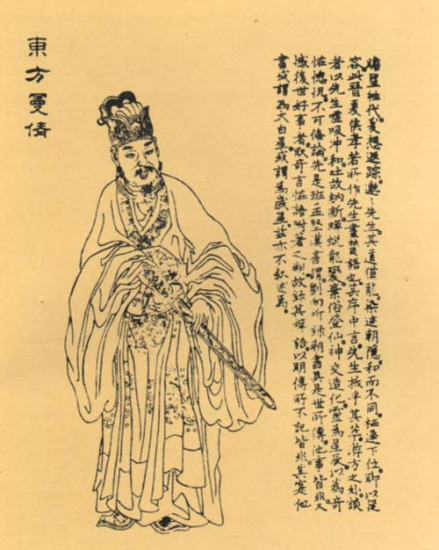 瞻望往代爰想遐踪邈〻先生其道猶龍染迹朝隱和而不同栖遲下位聊以從
容此晉夏侯孝若所作先生畫贊語也其序中言先生拔乎其萃游方之外談
者以先生噓吸冲和吐故納新蟬蛻龍變棄俗登仙神交造化靈為星辰以為奇
怪惚怳不可備論先是班孟堅漢書謂劉向所錄朔書具是世所傳他事皆非又
憾後世好事者取奇言怪語附著之朔故錄其辭語以明傳所不記皆非其實他
書或謂為太白星或謂為歲星茲亦不敘述焉
東方曼倩